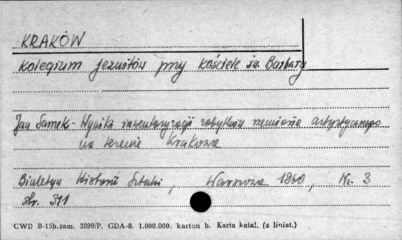 KRAKÓW
kolegium jezuitów przy kościele św. Barbary
Jan Samek - Wyniki inwentaryzacji zabytków rzemiosła artystycznego
na terenie Krakowa
Biuletyn Historii Sztuki, Warszawa 1960, Nr. 3
str. 311
CWD B-15b.zam. 2899/P. GDA-8. 1.000.000. karton b. Karta katal. (z liniat.)